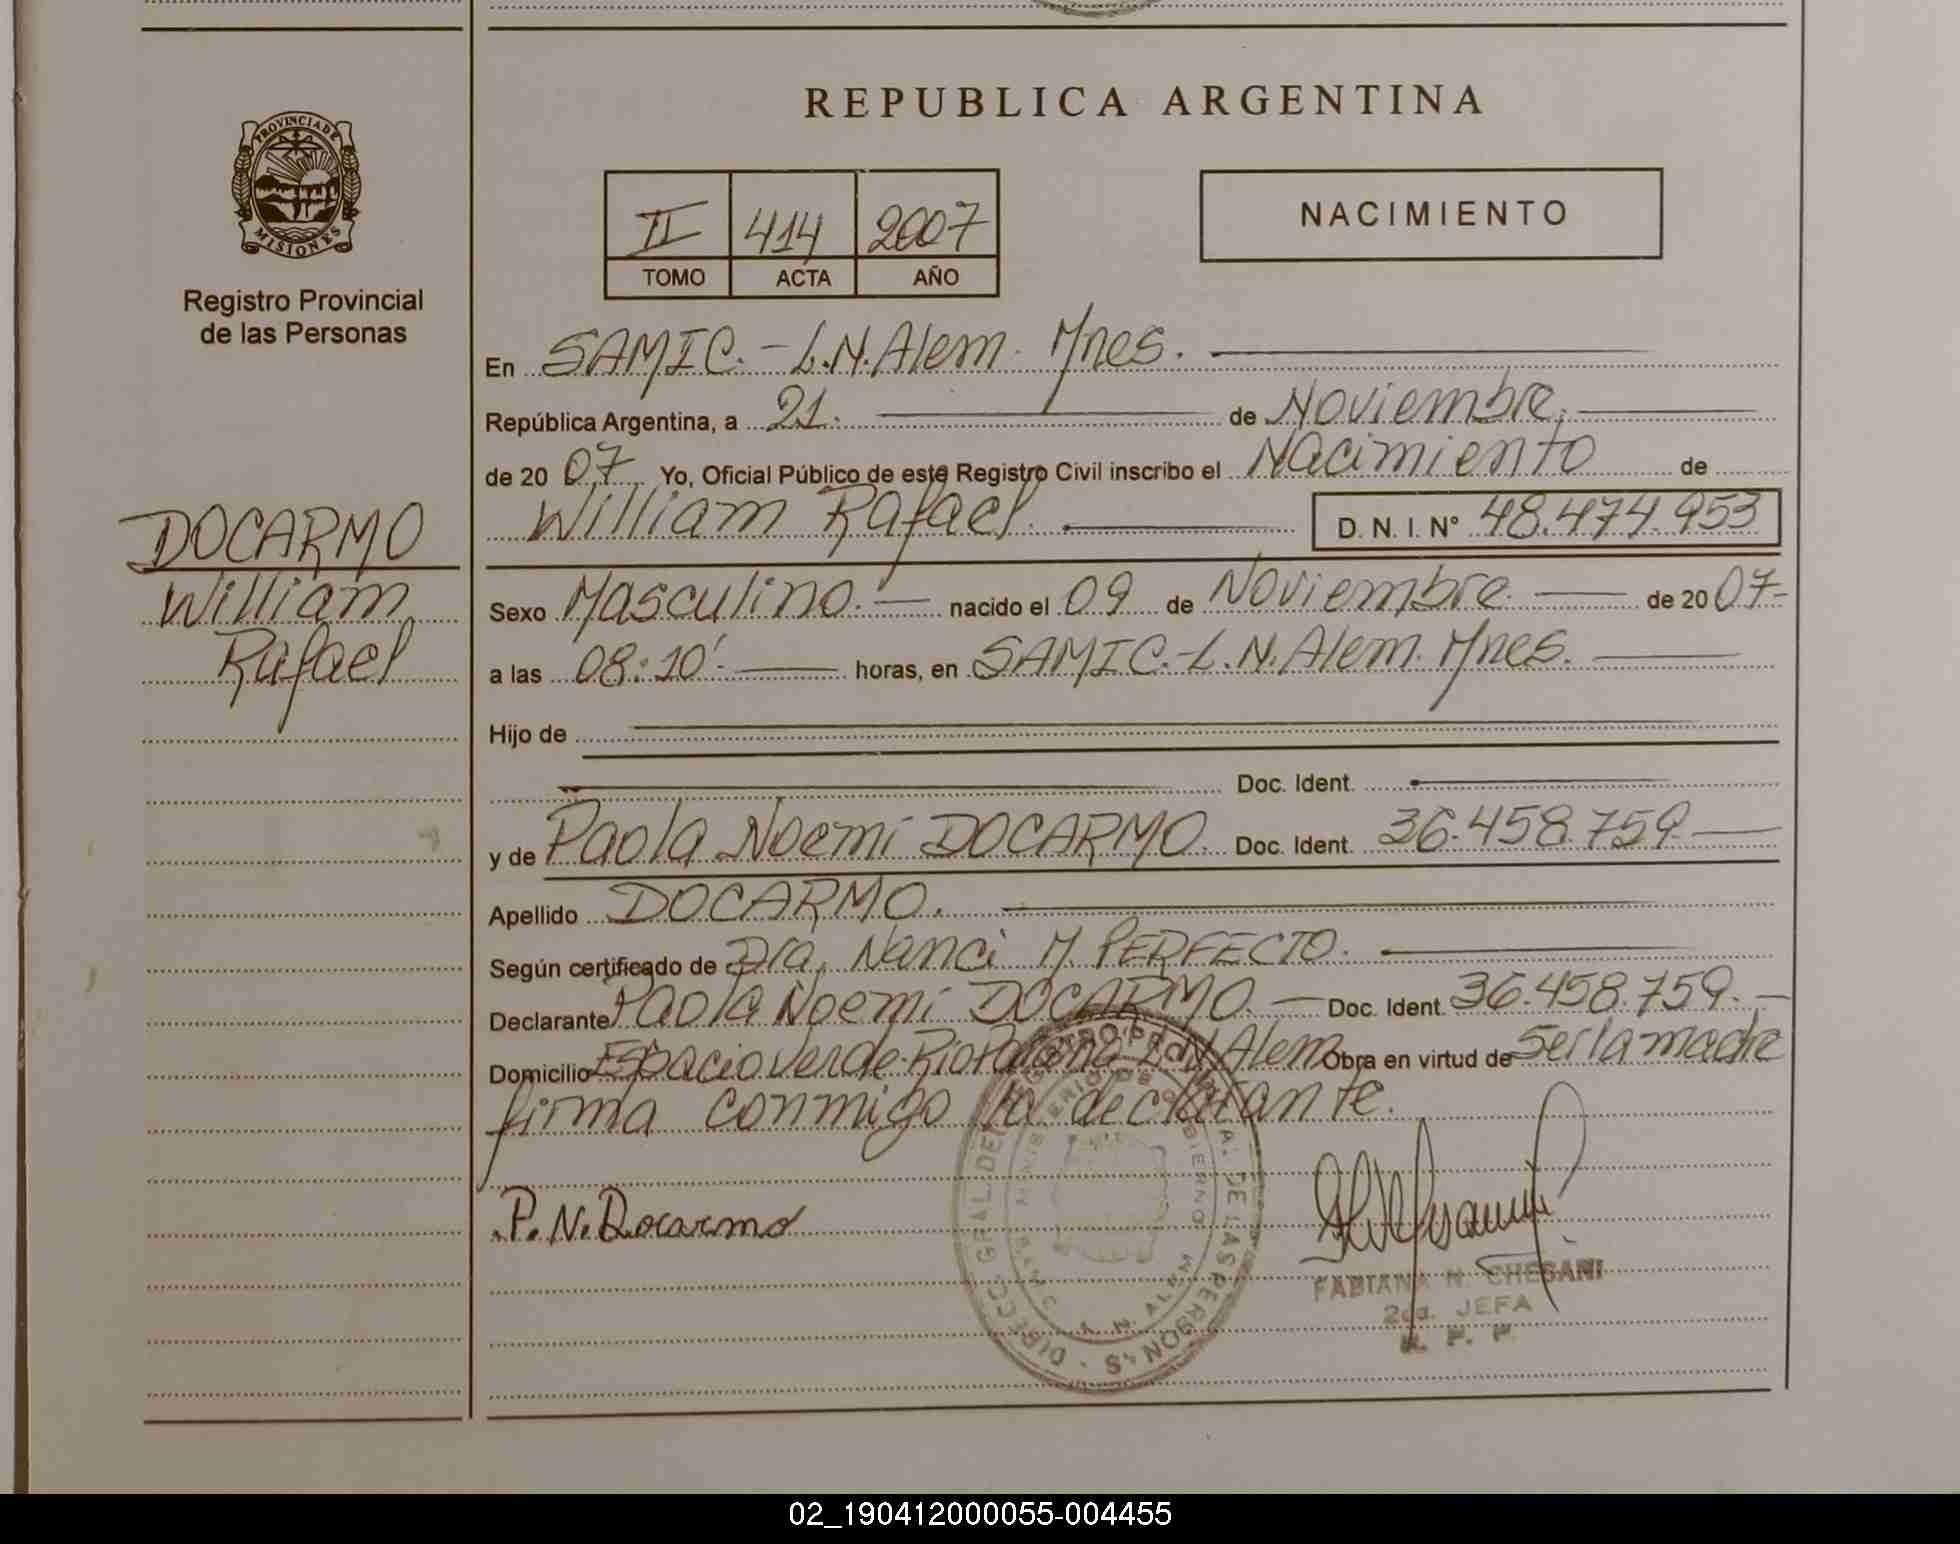 REPUBLICA ARGENTINA
PROVINCIA DE MISIONES
Registro Provincial
de las Personas
II 414 2007
TOMO ACTA AÑO
NACIMIENTO
En SAMIC.-L.N.Alem. Mnes.
República Argentina, a 21. de Noviembre.
de 2007 Yo, Oficial Público de este Registro Civil inscribo el Nacimiento de
William Rafael. D. N. I. Nº 48.474.953
DOCARMO
William
Rafael
Sexo Masculino. nacido el 09 de Noviembre. de 2007-
a las 08:10'. horas, en SAMIC.-L.N.Alem. Mnes.
Hijo de
Doc. Ident.
y de Paola Noemi DOCARMO. Doc. Ident. 36.458.759.
Apellido DOCARMO.
Según certificado de Dra. Nanci M. PERFECTO.
Declarante Paola Noemi DOCARMO. Doc. Ident. 36.458.759.
Domicilio Espacio Verde-Rio Parana L.N.Alem Obra en virtud de Ser la madre
firma conmigo la declarante.
P.N.Docarmo
DIRECC. GRAL. DEL REGISTRO PROVINCIAL DE LAS PERSONAS
MINISTERIO DE GOBIERNO
L. N. ALEM MISIONES
FABIANA N. CHESANI
2da. JEFA
R. P. P.
02_190412000055-004455